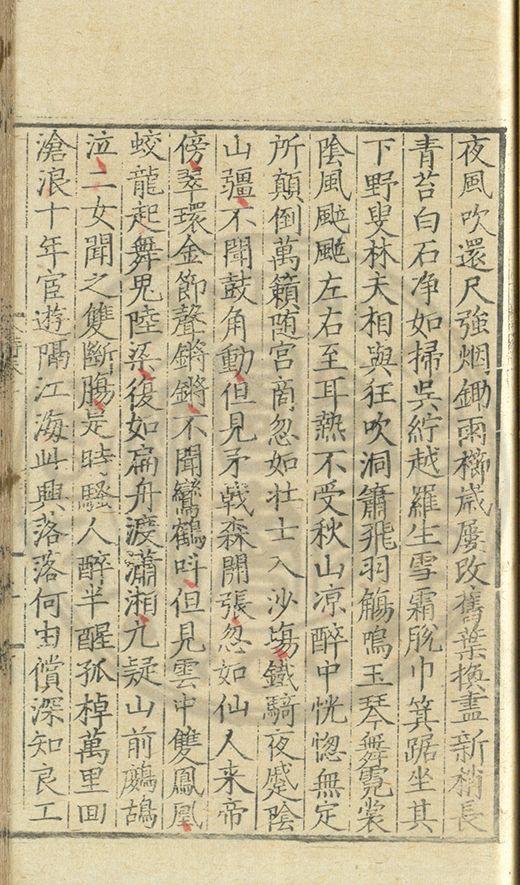 夜風吹還尺強烟鋤雨櫛歳屢改舊葉換盡新梢長
青苔白石净如掃吳紵越羅生雪霜脫巾箕踞坐其
下野叟林夫相與狂吹洞簫飛羽觴鳴玉琴舞霓裳
陰風颭颭左右至耳熱不受秋山凉醉中恍惚無定
所顛倒萬籟随宫商忽如壮士入沙塲鐵騎夜蹙陰
山疆不聞鼓角動但見矛戟森開張忽如仙人来帝
傍翠環金節聲鏘鏘不聞鸞鶴呌但見雲中雙鳳凰
蛟龍起舞鬼陸梁復如扁舟渡瀟湘九疑山前鷓鴣
泣二女聞之雙斷膓是時騷人醉半醒孤棹萬里囬
滄浪十年宦遊隔江海此興落落何由償深知良工